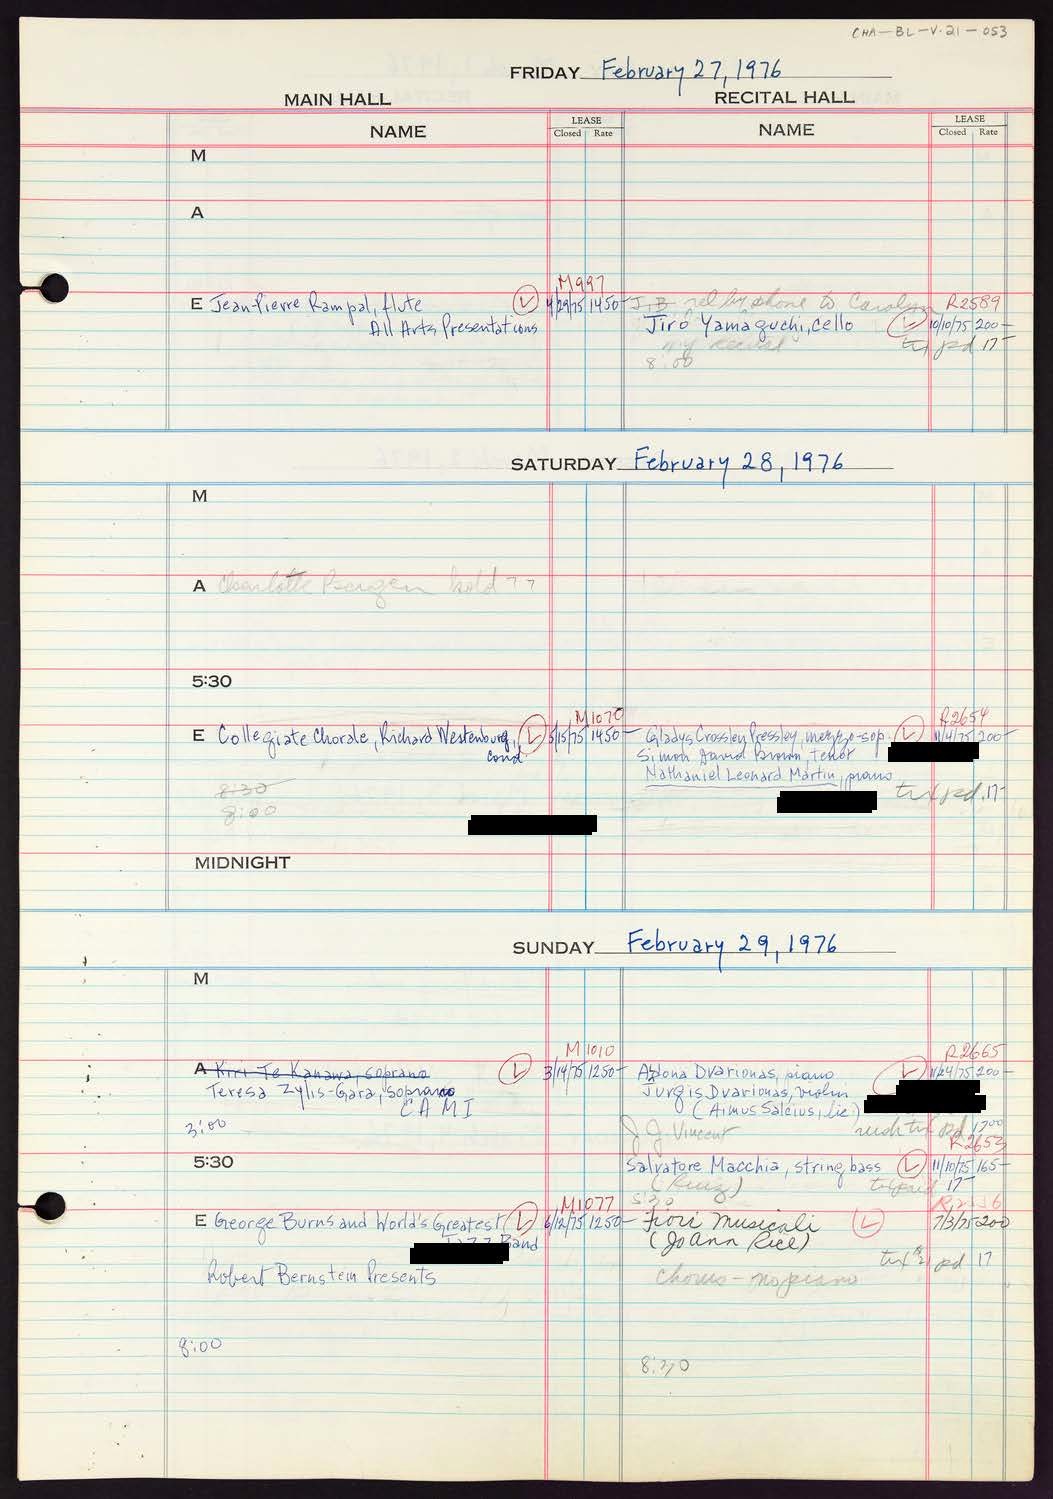 CHA-BL-V.21-053
FRIDAY February 27, 1976
MAIN HALL
RECITAL HALL
NAME
LEASE
Closed Rate
NAME
LEASE
Closed Rate
M
A
M997
E Jean-Pierre Rampal, flute 4/29/75 1450-
All Arts Presentations
J.B. rel by phone to Carolyn R2589
Jiro Yamaguchi, cello 10/10/75 200-
N.Y. recital tix pd 17-
8:00
SATURDAY February 28, 1976
M
A Charlotte Bergen hold ??
5:30
M1070
E Collegiate Chorale, Richard Westenburg, 5/15/75 1450-
cond
8:30
8:00
R2654
Gladys Crossley Pressley, mezzo-sop. 11/4/75 200-
Simon David Brown, tenor
Nathaniel Leonard Martin, piano
tix pd. 17-
MIDNIGHT
SUNDAY February 29, 1976
M
M1010
A Kiri Te Kanawa, soprano 3/14/75 1250-
Teresa Zylis-Gara, soprano
CAMI
3:00
R2665
Aldona Dvarionas, piano 11/24/75 200-
Jurgis Dvarionas, violin
(Aimus Salcius, lic)
J. Vincent rush tix pd 17.00
R2653
5:30
Salvatore Macchia, string bass 11/10/75 165-
tix paid 17-
5:30
M1077
E George Burns and World's Greatest 6/12/75 1250-
Jazz Band
Robert Bernstein Presents
8:00
Fiori Musicali 7/3/75 200
(JoAnn Rice)
tix pd 17
Chorus - no piano
8:30